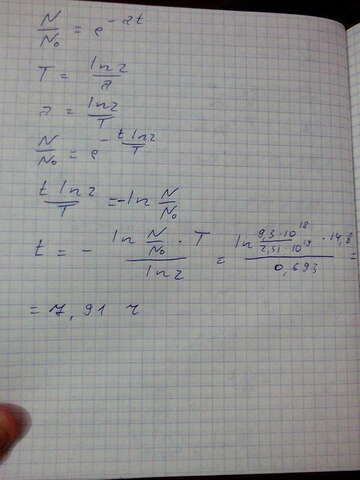 N/N₀ = e^(-at)
T = ln2/a
a = ln2/T
N/N₀ = e^(- t ln2/T)
t ln2/T = -ln N/N₀
t = - (ln N/N₀ · T)/ln2 = (ln (9,3·10^18)/(2,51·10^19) · 14,8)/0,693 =
= 7,91 г